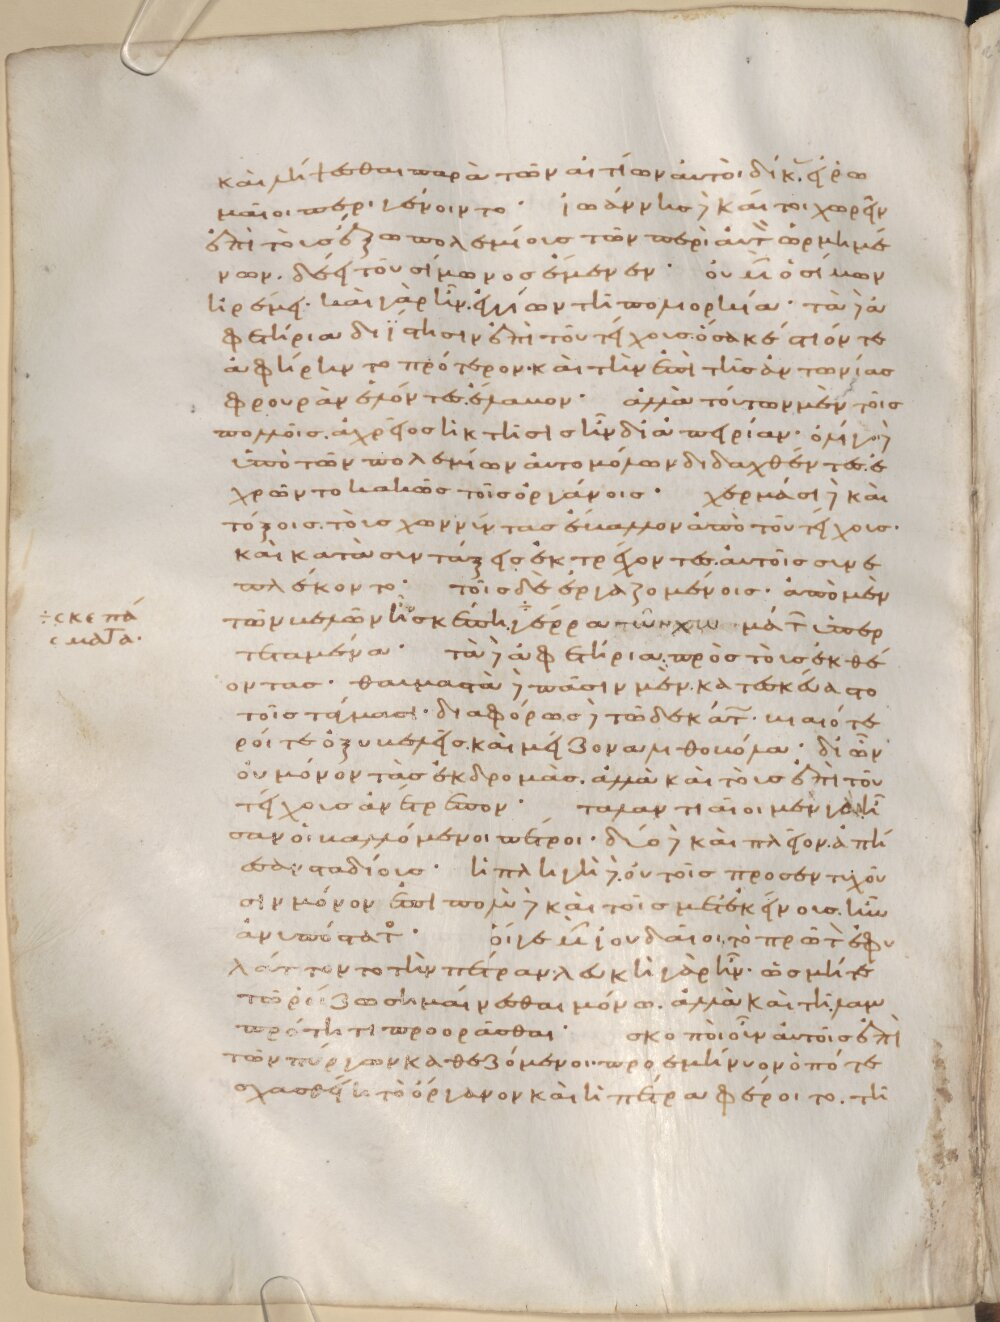 καὶ λήψεσθαι παρὰ τῶν αἰτίων αὐτοὶ δίκας, εἰ ῥω
μαῖοι περιγένοιντο· ἰωάννης δὲ καίτοι χωρεῖν
ἐπὶ τοὺς ἔξω πολεμίους τῶν περὶ αὐτὸν ὡρμημέ
νων. δέει τοῦ σίμωνος ἔμενεν· οὐ μὴν ὁ σίμων
ἠρέμει· καὶ γὰρ ἦν ἐγγίων τῆ πολιορκία· τὰ δὲ ἀ
φετήρια διΐστησιν ἐπὶ τοῦ τείχους ὅσα κέστιόν τε
ἀφήρηντο πρότερον· καὶ τὴν ἐπὶ τῆς ἀντωνίας
φρουρὰν ἑλόντες ἔλαβον· ἀλλὰ τούτων μὲν τοῖς
πολλοῖς ἀχρεῖος ἡ κτῆσις ἦν δι' ἀπειρίαν· ὀλίγοι δὲ
ὑπὸ τῶν πολεμίων αὐτομόλων διδαχθέντες ἐ
χρῶντο κακῶς τοῖς ὀργάνοις· χερμάσι δὲ καὶ
τόξοις. τοὺς χωννύντας ἔβαλλον ἀπὸ τοῦ τείχους·
καὶ κατὰ συντάξεις ἐκτρέχοντες αὐτοῖς συνε
πλέκοντο· τοῖς δὲ ἐργαζομένοις· ἀπὸ μὲν
τῶν βελῶν ἦν σκέπη ÷ γέρρα τῶν χωμάτων ὑπερ
÷ σκεπά
σματα·
τεταμένα· τὰ δὲ ἀφετήρια πρὸς τοὺς ἐκθέ
οντας· θαυμαστὰ δὲ πᾶσιν μὲν. κατεσκεύαστο
τοῖς τάγμασι· διαφόρως δὲ τῶ δεκάτω· βιαιότε
ροί τε ὀξυβελεῖς. καὶ μείζονα λιθοβόλα· δι' ὧν
οὐ μόνον τὰς ἐκδρομὰς. ἀλλὰ καὶ τοὺς ἐπὶ τοῦ
τείχους ἀνέτρεπον· ταλαντιαῖοι μὲν γὰρ ἦ
σαν οἱ βαλλόμενοι πέτροι· δύο δὲ καὶ πλεῖον. ἀπή
εσαν σταδίους· ἡ πληγὴ δὲ. οὐ τοῖς προσεντυχοῦ
σιν μόνον ἐπὶ πολὺ δὲ καὶ τοῖς μετ' ἐκείνους. ἦν
ἀνυπόστατος· οἵ γε μὴν ἰουδαῖοι. τὸ πρῶτον ἐφυ
λάττοντο τὴν πέτραν. λευκὴ γὰρ ἦν· ὡς μήτε
τῶ ῥοίζω σημαίνεσθαι μόνω. ἀλλὰ καὶ τῆ λαμ
πρότητι προορᾶσθαι· σκοποὶ οὖν αὐτοῖς ἐπὶ
τῶν πύργων καθεζόμενοι. προεμήνυον ὁπότε
σχασθείη τὸ ὄργανον καὶ ἡ πέτρα φέροιτο. τῆ